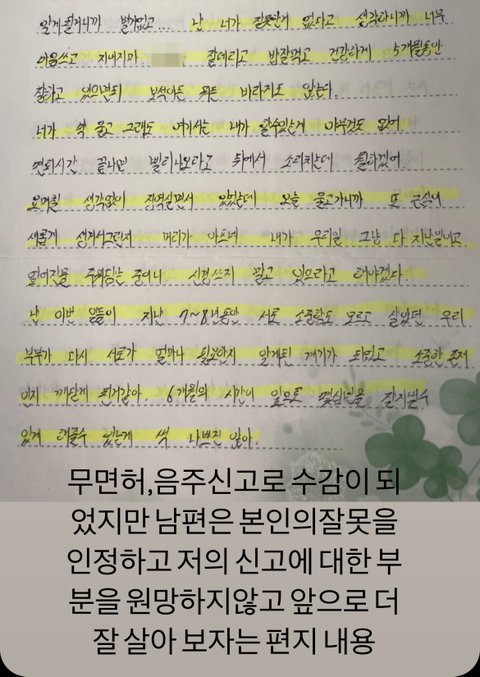 알게 된거니까 별거없고... 난 너가 잘못한게 없다고 생각하니까 너무
마음쓰고 지내지마 잘데리고 밥잘먹고 건강하게 5개월동안
잘하고 있으면돼 보석이든 뭐든 바라지도 않는다.
너가 막 울고 그래도 여기서는 내가 할수있는게 아무것도 없어
면회시간 끝나면 빨리나오라고 뒤에서 소리치는데
생각없이 징역살면서 있었는데 오늘 울고가니까 또 근심이
새롭게 생겨서그런지 머리가 아프네 내가 우리일 그냥 다 지난일이고
줏어담을 신경쓰지 말고 있으라고
난 이번 일들이 지난 7~8년동안 서로 소중함도 모르고 살았던 우리
부부가 다시 서로가 얼마나 필요한지 알게된 계기가 되었고 소중한 존재
인지 깨닫게 된거같아. 6개월의 시간이 앞으로 잘지낼수
있게 해줄수 있는게 썩 나쁘진 않아.
무면허,음주신고로 수감이 되
었지만 남편은 본인의잘못을
인정하고 저의 신고에 대한 부
분을 원망하지않고 앞으로 더
잘 살아 보자는 편지 내용